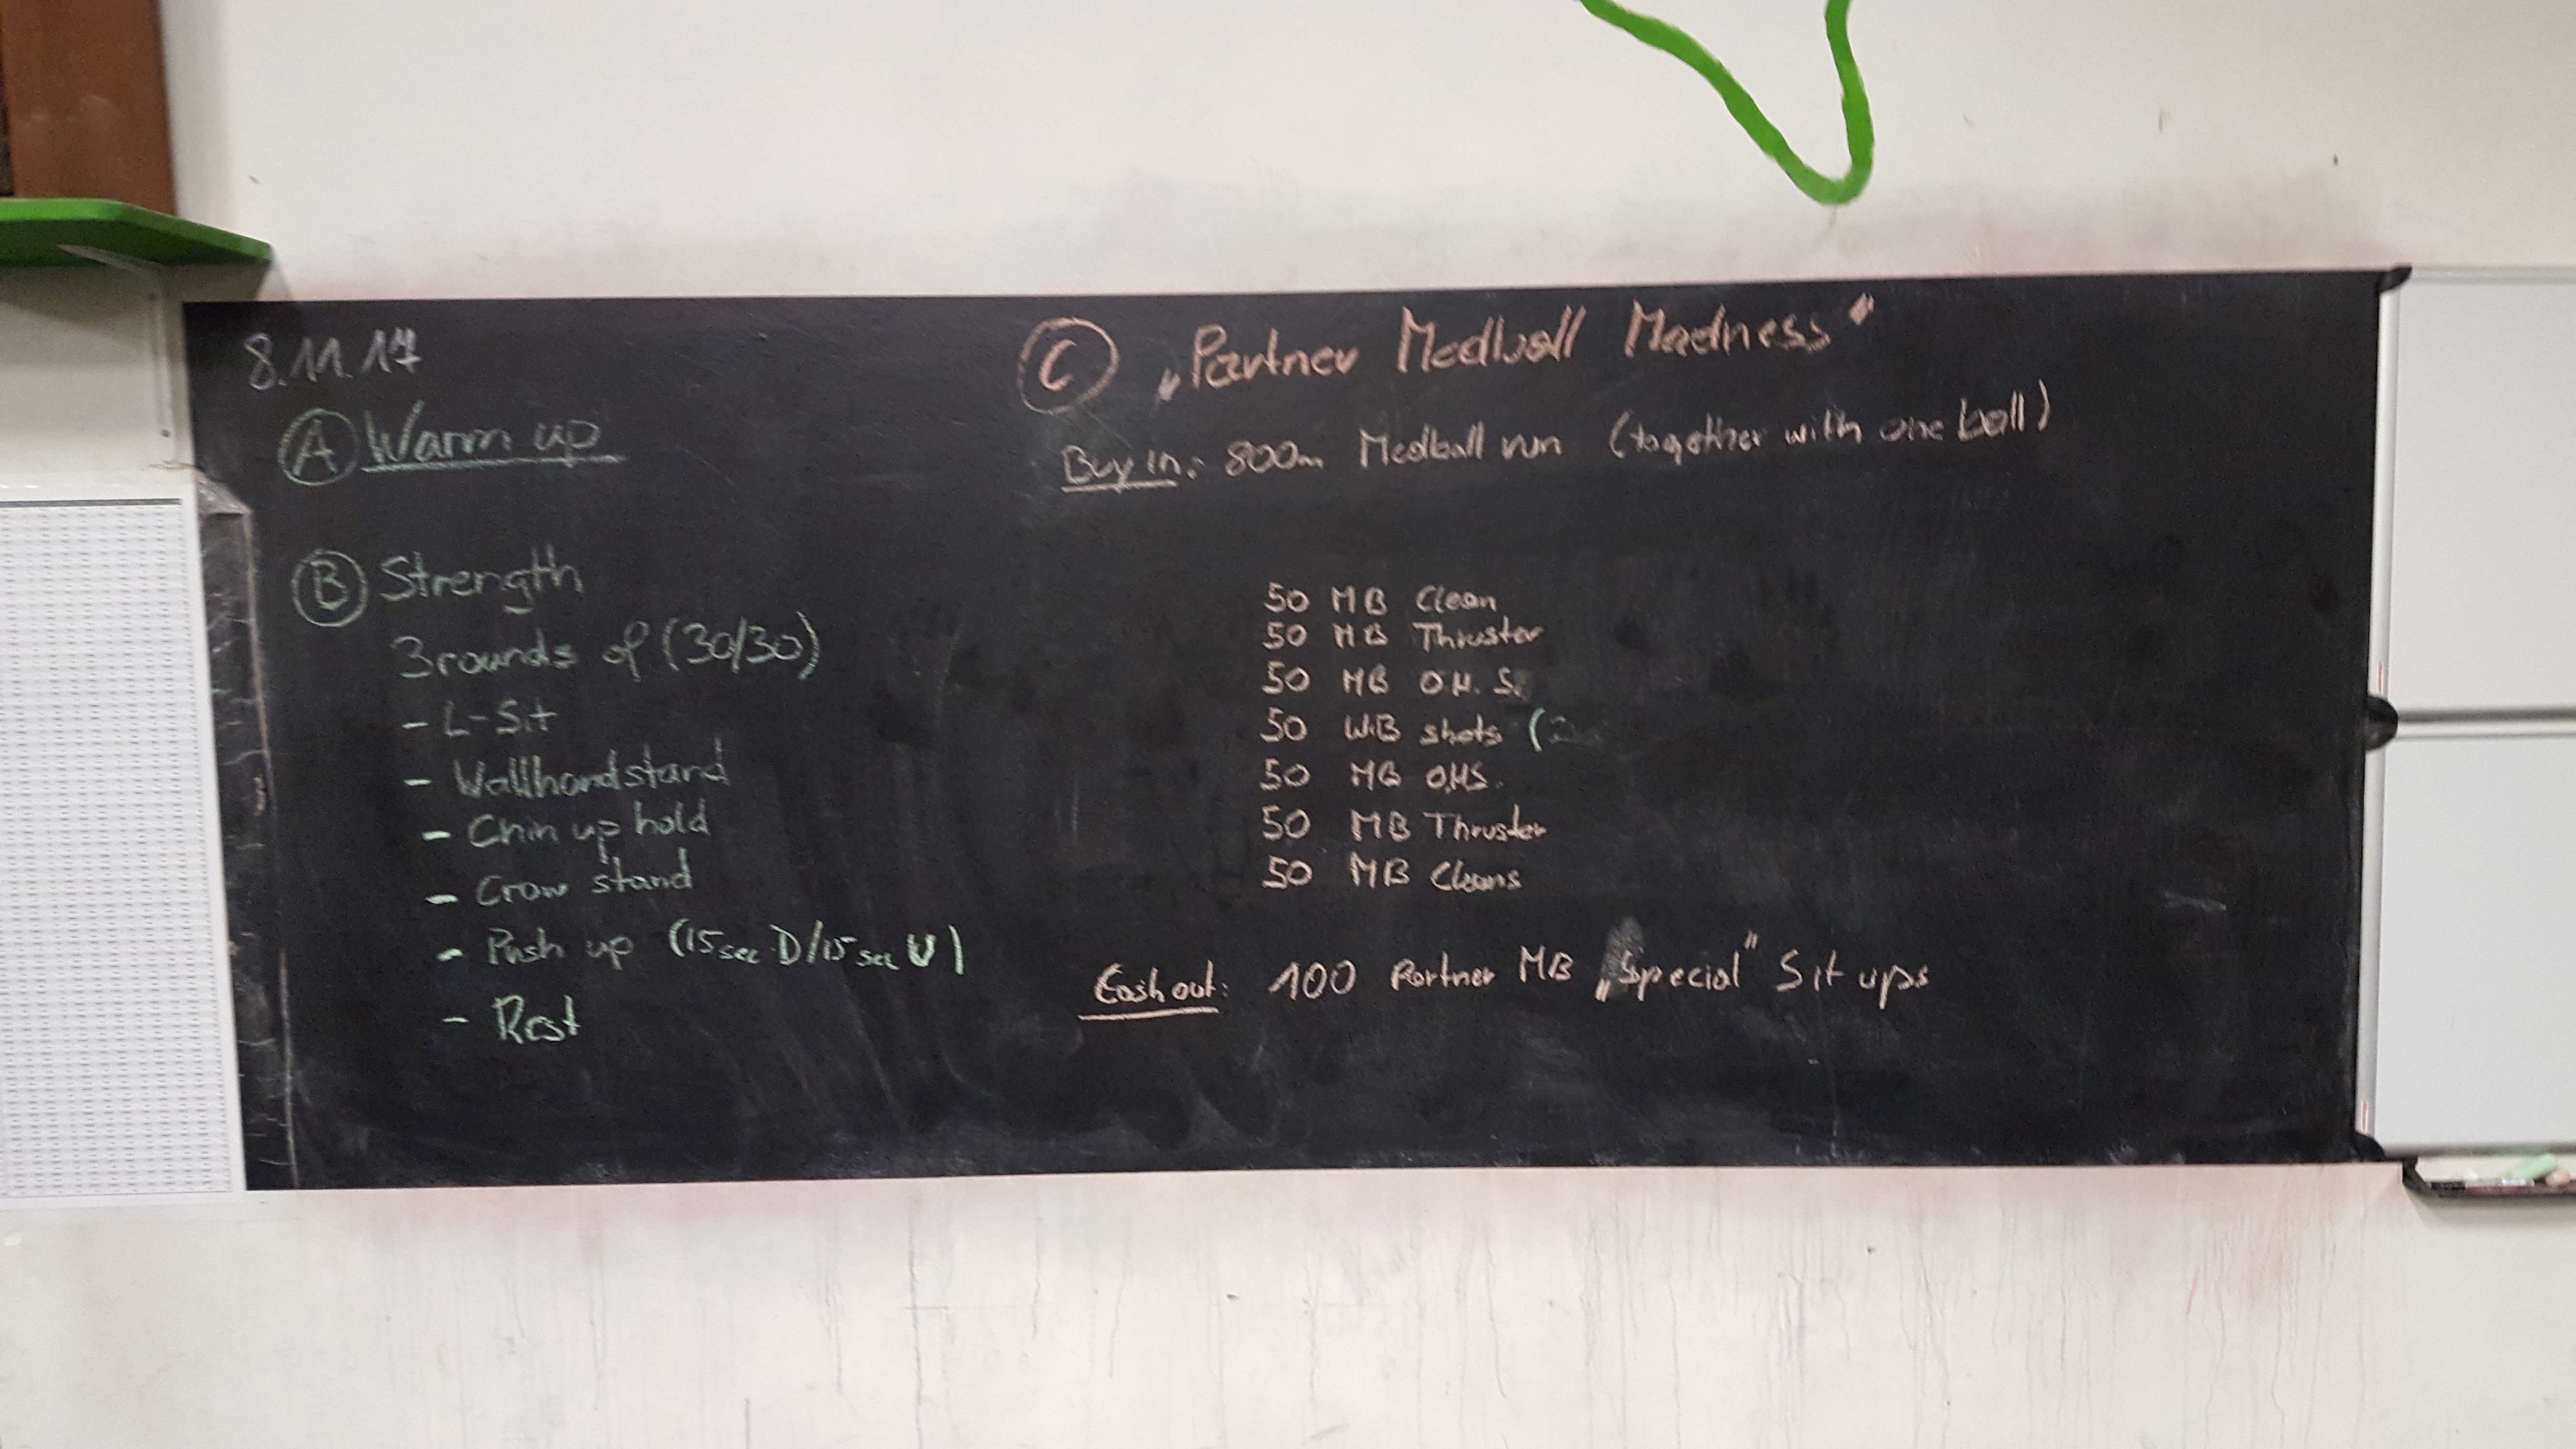 8.11.17
A Warm up
B Strength
3 rounds of (30/30)
- L-Sit
- Wallhandstand
- Chin up hold
- Crow stand
- Push up (15 sec D/15 sec U)
- Rest
C „Partner Medball Madness"
Buy in: 800m Medball run (together with one ball)
50 MB Clean
50 MB Thruster
50 MB O.H.S.
50 WB shots (
50 MB OHS.
50 MB Thruster
50 MB Cleans
Cash out: 100 Partner MB „Special" Sit ups